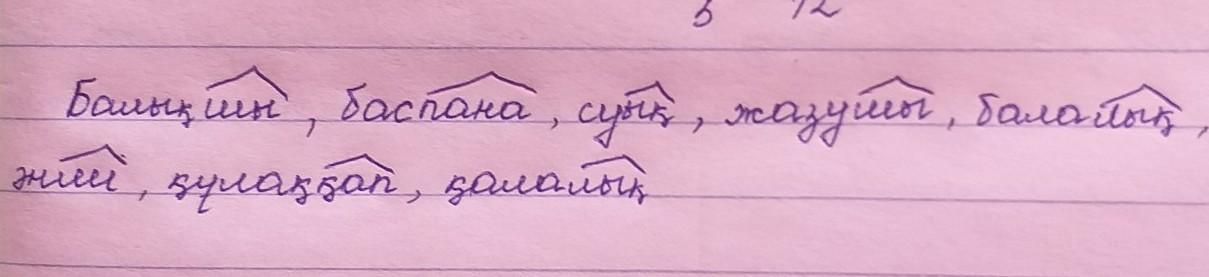 Балықшы, баспана, суық, жазушы, балалық,
жиі, құлаққап, қалалық